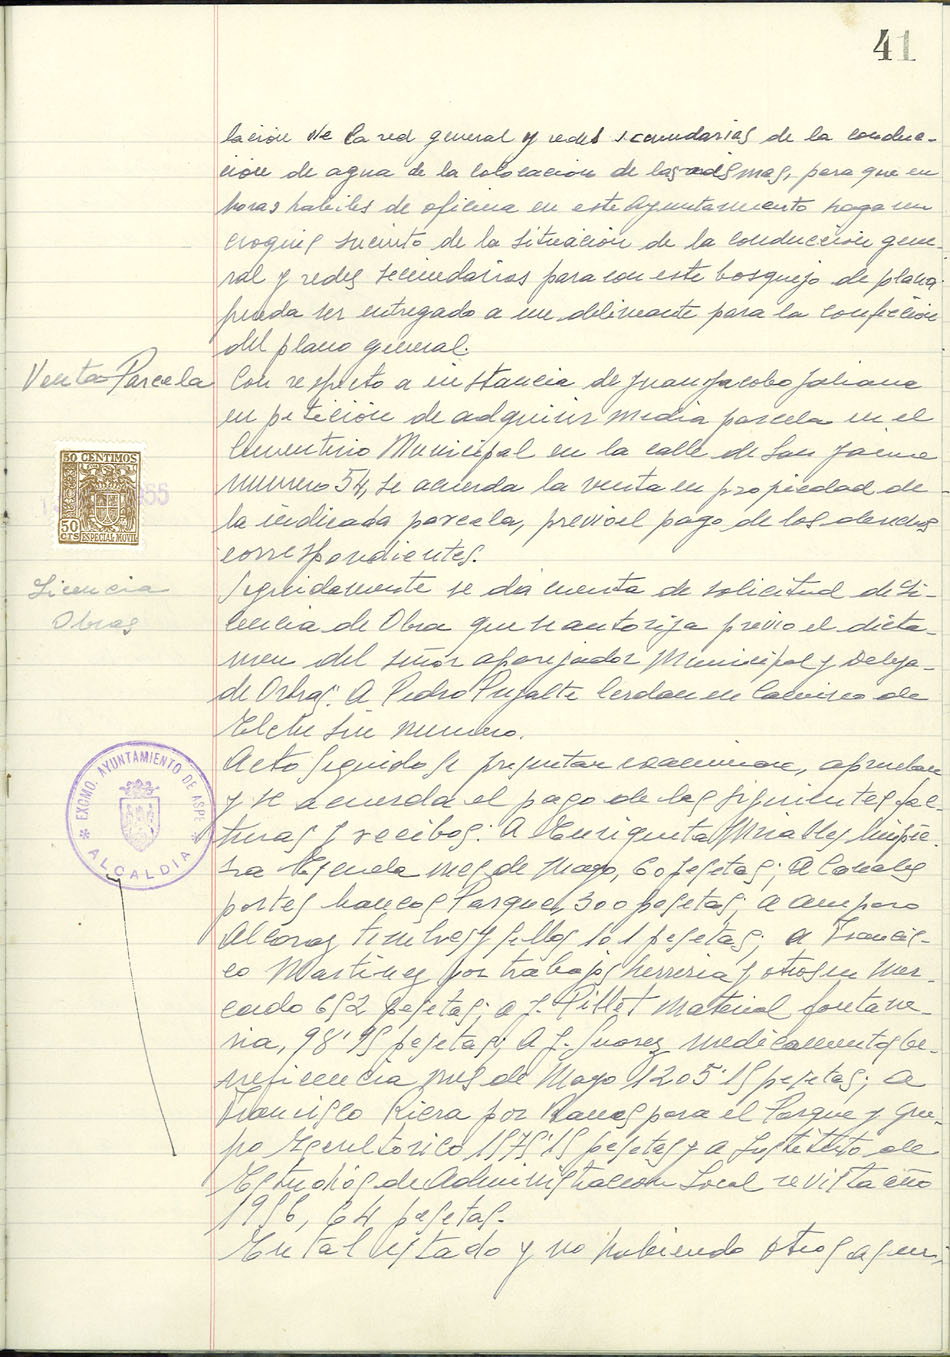 41
lacion de la red general y redes secundarias de la conduc-
ción de agua de la colocacion de las mismas, para que en
horas habiles de oficina en este Ayuntamiento haga un
croquis sucinto de la situacion de la conduccion gene-
ral y redes secundarias para con este bosquejo de plano
pueda ser entregado a un delineante para la confeccion
del plano general.
Venta Parcela
Con respecto a instancia de Juan Jacobo Galiana
en peticion de adquirir media parcela en el
Cementerio Municipal en la calle de San Jaime
numero 54, se acuerda la venta en propiedad de
la indicada parcela, previo el pago de los derechos
correspondientes.
50 CENTIMOS
50
CTS ESPECIAL MOVIL
Licencia
Obras
Seguidamente se da cuenta de solicitud de Li-
cencia de Obra que se autoriza previo el dicta-
men del señor aparejador Municipal y Delega-
de Obras. A Pedro Pujalte Cerdan en Camino de
Elche sin numero.
EXCMO. AYUNTAMIENTO DE ASPE
ALCALDIA
Acto seguido se presentan examinan, aprueban
y se acuerda el pago de las siguientes fac-
turas y recibos: A Enriqueta Miralles limpie-
za Escuela mes de Mayo, 60 pesetas; a Canales
portes bancos Parque, 300 pesetas; a Amparo
Alcaraz timbres y sellos 101 pesetas; a Francis-
co Martinez por trabajos herreria y otros en Mer-
cado 692 pesetas; a J. Pillet material fontane-
ria, 98'95 pesetas; A J. Suarez medicamentos be-
neficencia mes de Mayo 1205'15 pesetas; a
Francisco Riera por Bancos para el Parque y Gru-
po Escultorico 1575'15 pesetas y a Instituto de
Estudios de Administracion Local revista año
1956, 64 pesetas.
En tal estado y no habiendo otros asun-